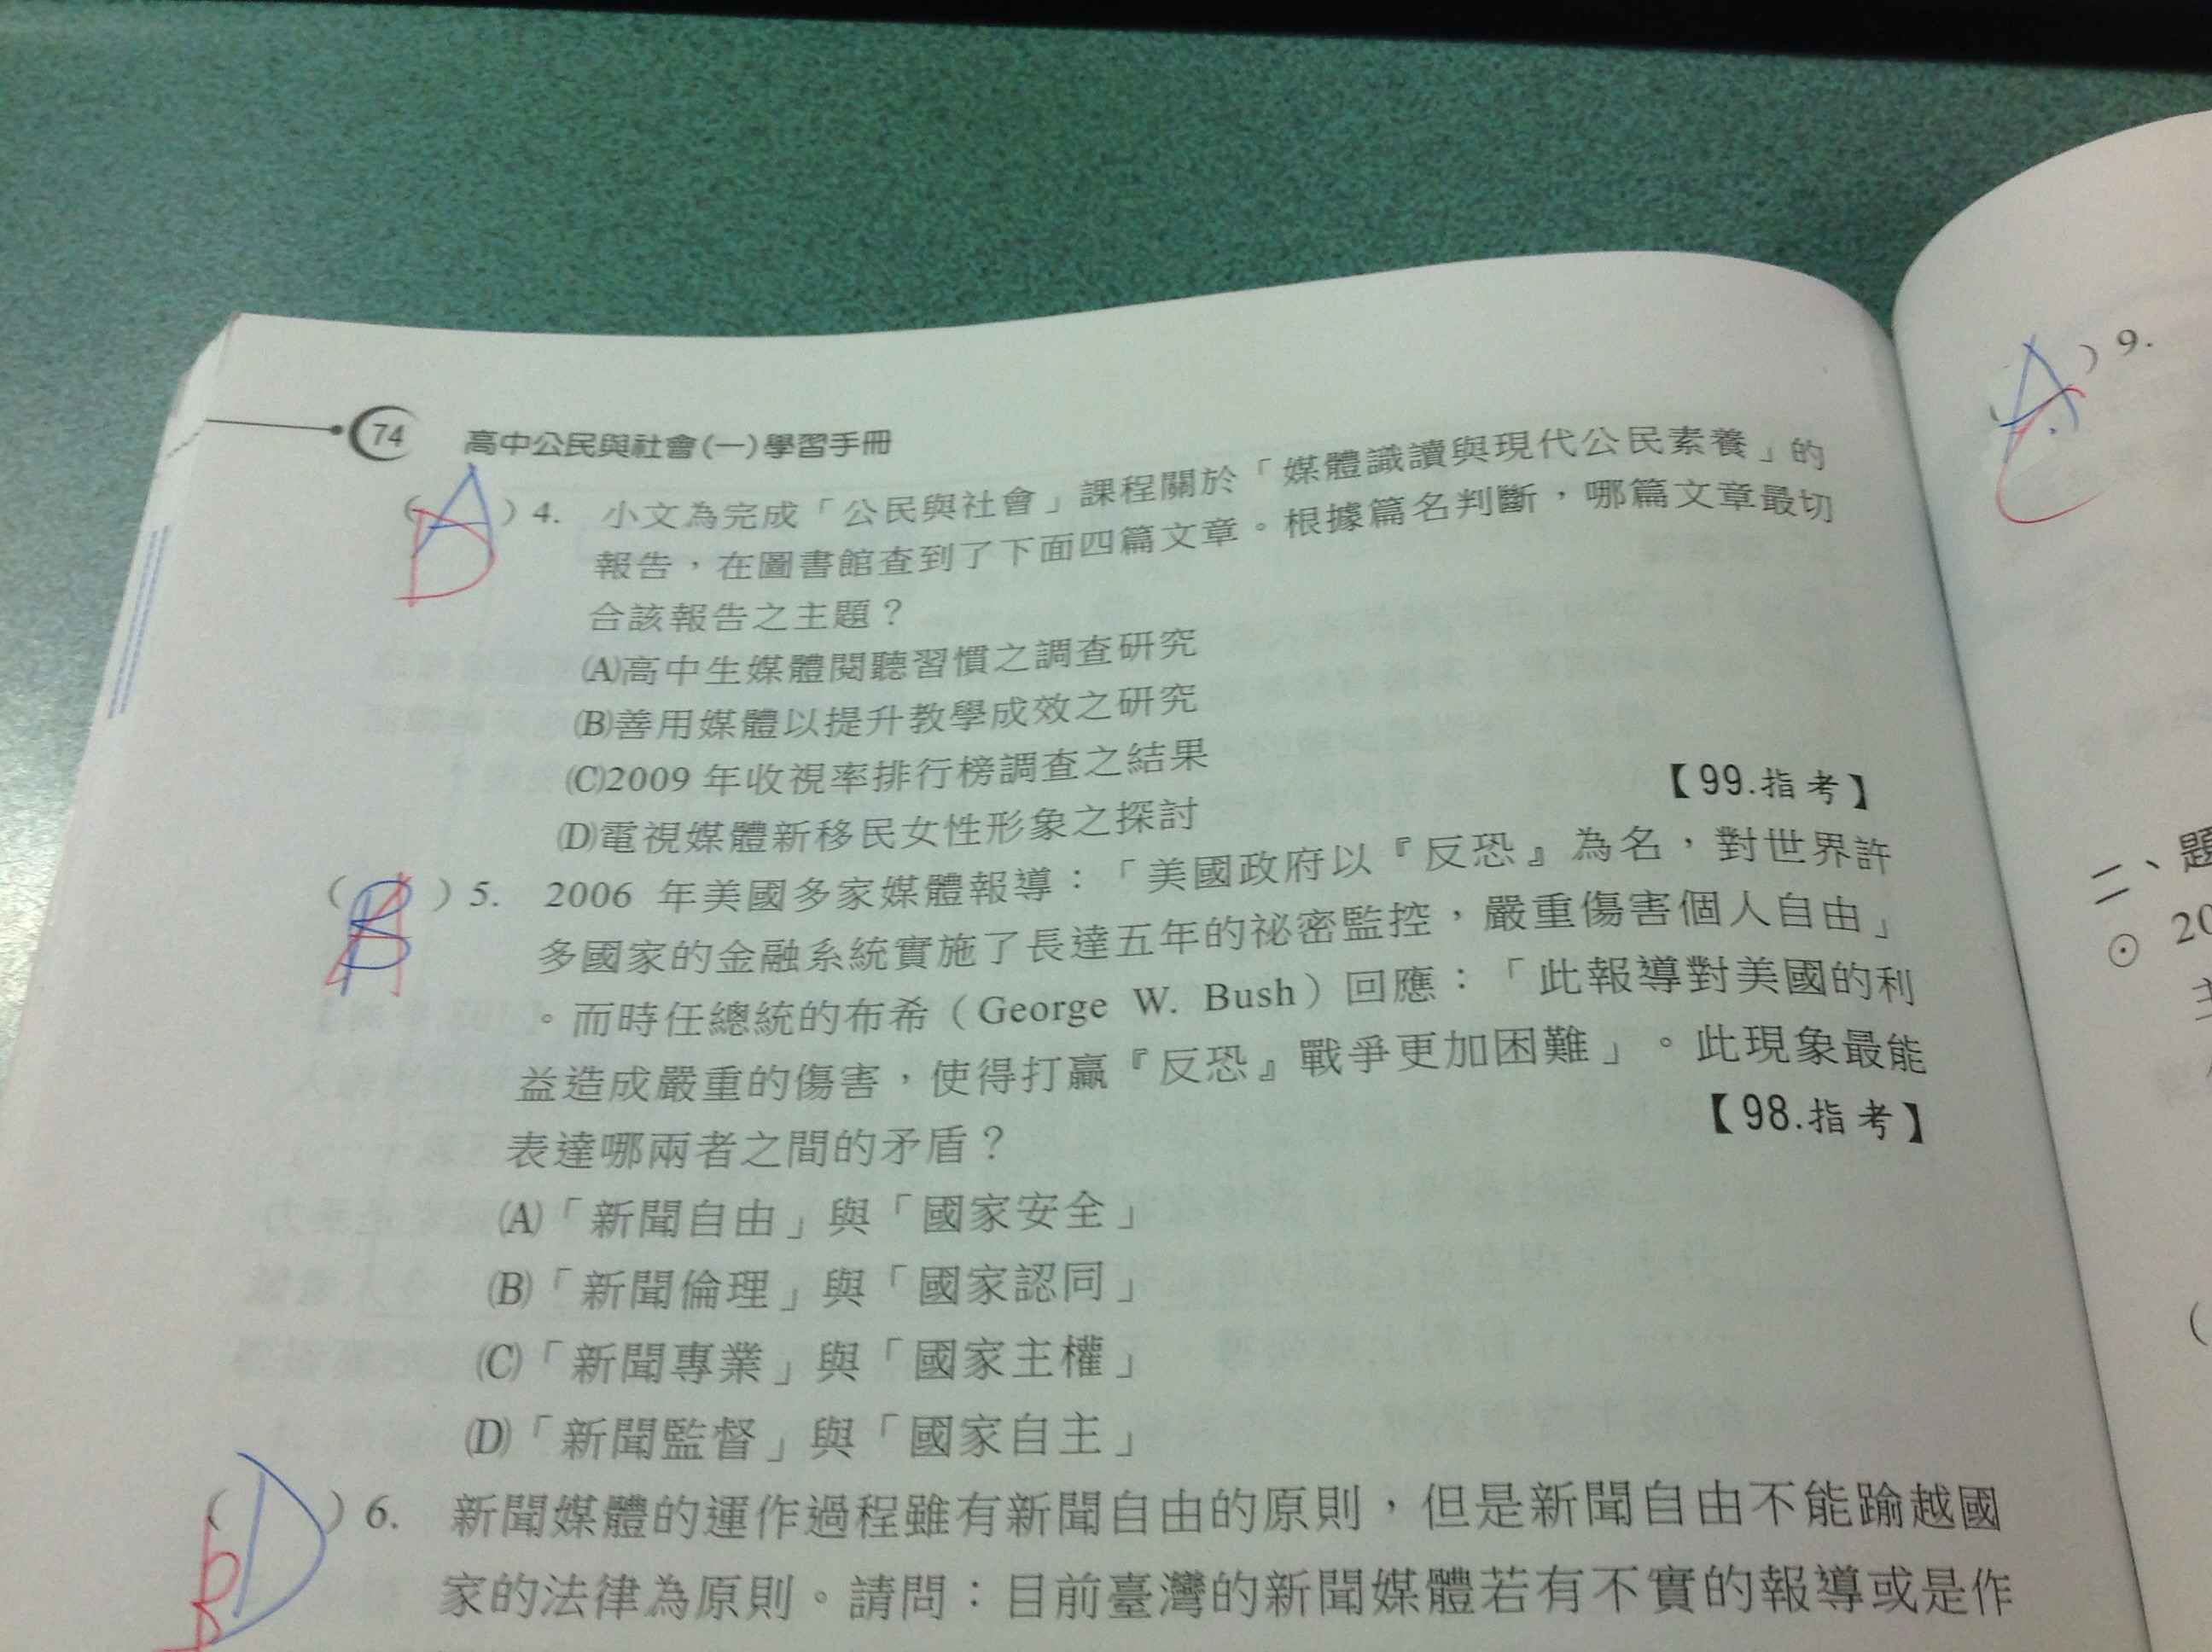 74 高中公民與社會(一)學習手冊
(A D) 4. 小文為完成「公民與社會」課程關於「媒體識讀與現代公民素養」的
報告，在圖書館查到了下面四篇文章。根據篇名判斷，哪篇文章最切
合該報告之主題？
(A)高中生媒體閱聽習慣之調查研究
(B)善用媒體以提升教學成效之研究
(C)2009 年收視率排行榜調查之結果
(D)電視媒體新移民女性形象之探討
【99.指考】
(B A) 5. 2006 年美國多家媒體報導：「美國政府以『反恐』為名，對世界許
多國家的金融系統實施了長達五年的祕密監控，嚴重傷害個人自由」
。而時任總統的布希（George W. Bush）回應：「此報導對美國的利
益造成嚴重的傷害，使得打贏『反恐』戰爭更加困難」。此現象最能
表達哪兩者之間的矛盾？
【98.指考】
(A)「新聞自由」與「國家安全」
(B)「新聞倫理」與「國家認同」
(C)「新聞專業」與「國家主權」
(D)「新聞監督」與「國家自主」
(D B) 6. 新聞媒體的運作過程雖有新聞自由的原則，但是新聞自由不能踰越國
家的法律為原則。請問：目前臺灣的新聞媒體若有不實的報導或是作
A C) 9.
二、題
⊙ 20